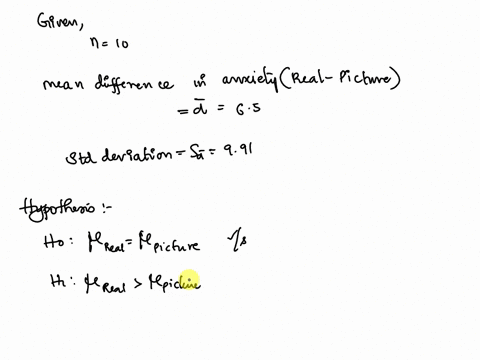 Given,
n = 10
mean difference in anxiety (Real - Picture)
= d̄ = 6.5
Std deviation = S_d̄ = 9.91
Hypothesis :-
H₀ : μ_Real = μ_picture V/s
H₁ : μ_Real > μ_picture